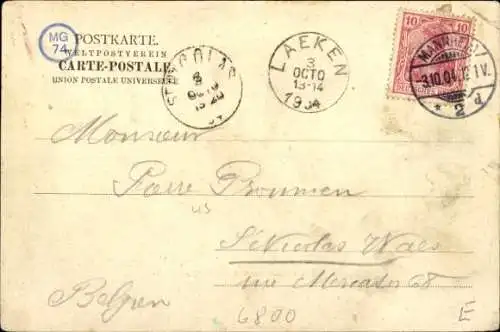 MG
74
POSTKARTE.
WELTPOSTVEREIN
CARTE-POSTALE
UNION POSTALE UNIVERSELLE
ST NICOLAS
LAEKEN
3
OCTO
13-14
1904
10
MANNHEIM
3.10.04.
* 2 d
Monsieur
Pierre
us
St Nicolas Waes
rue Mercator 68
Belgien
6800
E